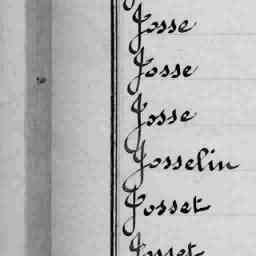 Josse
Josse
Josse
Josselin
Josset
Josset